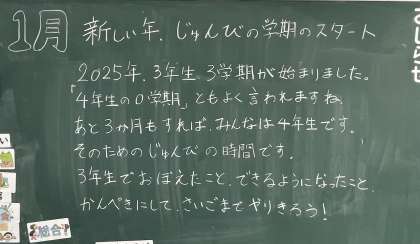 1月 新しい年、じゅんびの学期のスタート
2025年、3年生 3学期が始まりました。
「4年生の0学期」ともよく言われますね。
あと3か月もすれば、みんなは4年生です。
そのためのじゅんびの時間です。
3年生でおぼえたこと、できるようになったこと、
かんぺきにして、さいごまでやりきろう!
総合